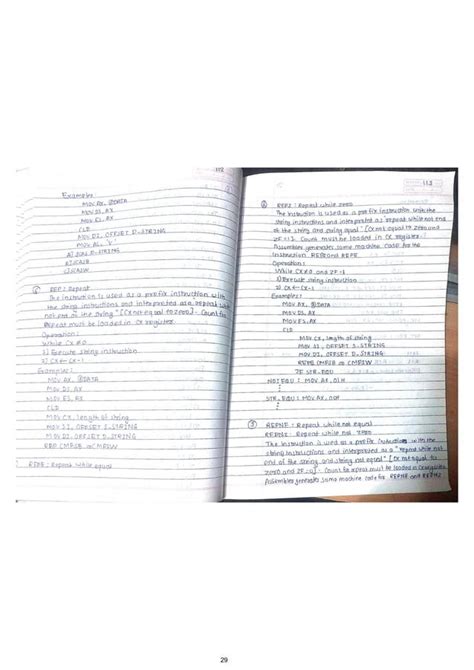 112
Example:
MOV AX, @DATA
MOV DS, AX
MOV ES, AX
CLD
MOV DI, OFFSET D-STRING
MOV AL,
REP: Repeat
The instruction is used as a prefix instruction with
the string instructions and interpreted as "repeat while
not end of the string" [CX not equal to zero]. Count for
Repeat must be loaded in CX register.
Operation:
While CX ≠ 0
1) Execute string instruction
2) CX ← CX-1
Example:
MOV AX, @DATA
MOV DS, AX
MOV ES, AX
CLD
MOV CX, length of string
MOV SI, OFFSET S.STRING
MOV DI, OFFSET D.STRING
CMPSB or CMPSW
REPE: Repeat while equal
113
REPZ: Repeat while zero
The instruction is used as a prefix instruction with the
string instructions and interpreted as "repeat while not end
of the string and string equal" [CX not equal to zero and
ZF=1]. Count must be loaded in CX register.
Assembler generates same machine code for the
instruction REPZ and REPE.
Operation:
While CX≠0 and ZF=1
1) Execute string instruction
2) CX ← CX-1
Example:
MOV AX, @DATA
MOV DS, AX
MOV ES, AX
CLD
MOV CX, length of string
MOV SI, OFFSET S.STRING
MOV DI, OFFSET D.STRING
REPE CMPSB or CMPSW
STR_EQU
NOTEQU: MOV AX,
STR_EQU: MOV AX,
③ REPNE: Repeat while not equal
REPNZ: Repeat while not zero
The instruction is used as a prefix instruction with the
string instructions and interpreted as a "repeat while not
end of the string and string not equal" [CX not equal to
zero and ZF=0]. Count to repeat must be loaded in CX register
Assembler generates same machine code for REPNE and REPNZ
29